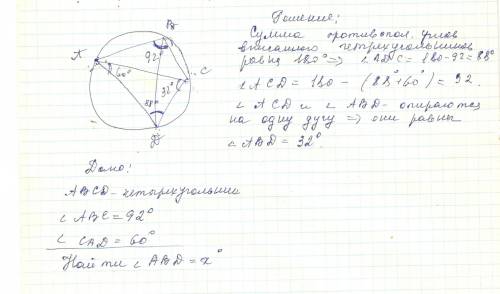 Решение:
Сумма противопол. углов
вписанного четырехугольника
равна 180° => ∠ADC = 180-92=88°
∠ACD = 180 - (88°+60°) = 32.
∠ACD и ∠ABD - опираются
на одну дугу => они равны
∠ABD = 32°.
A
B
C
D
92°
60°
32°
88°
Дано:
ABCD - четырехугольник
∠ABC = 92°
∠CAD = 60°
Найти ∠ABD = x°